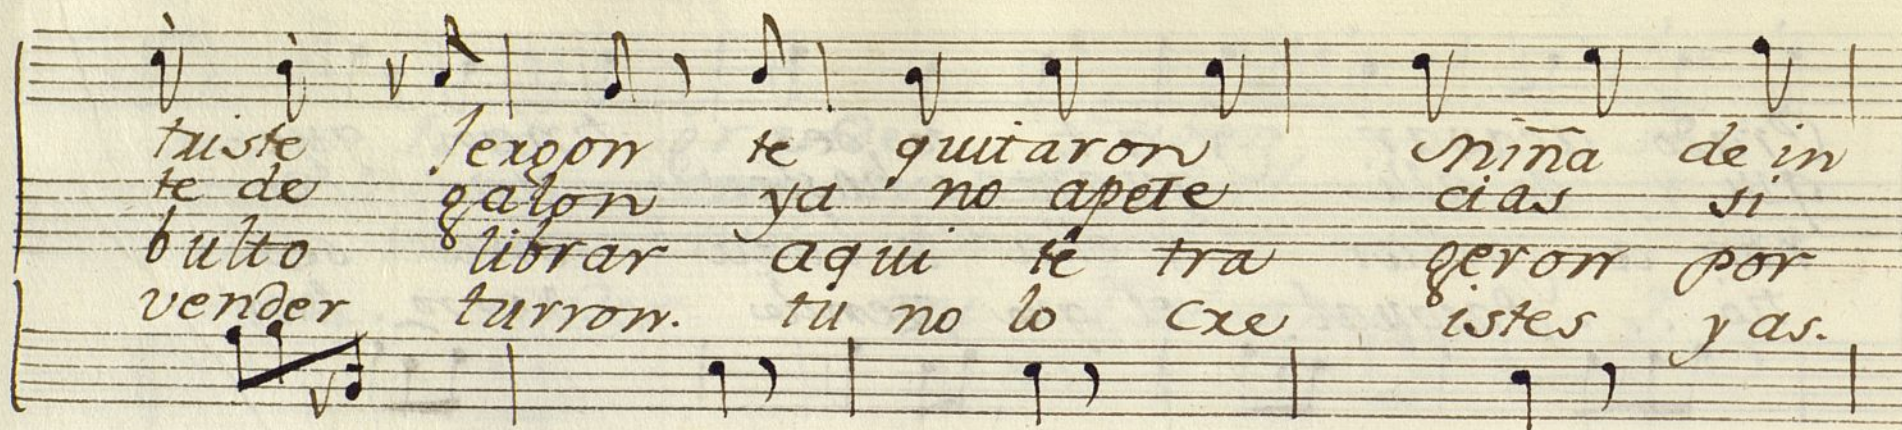 triste Jergon te quitaron niña de in
te de galon ya no apete cias si
bulto librar aqui te tra geron por
vender turron. tu no lo cre istes yas.